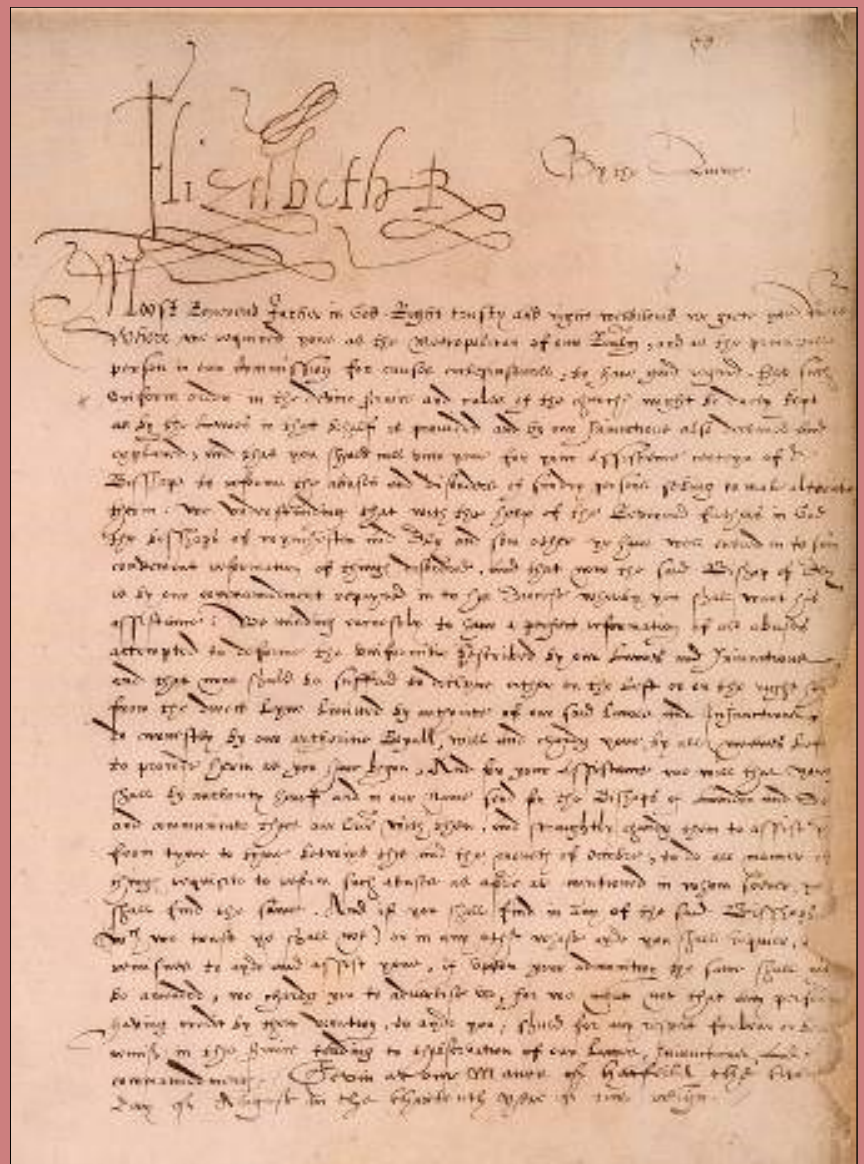 Elizabeth R
By the Quene
Moost Reverend father in God Right trusty and right welbiloved we grete you
Where we required you as the Metropolitan of our and as the
person in our commission for causes to have good regard that such
uniforme order in the and rules of the churche might be duely kept
as by the lawes in that behalf is provided and by our Iniunctions also declared and
explaned, and that you shuld call unto you for your assistance certayn of
Bisshops to reforme the abuses and disorders of sondry persons seking to make
them. We understanding that with the help of the Reverend fathers in God
the bisshops of wynchester and Ely and som other ye have well entred in to som
convenient reformation of things disordered, and that now the said Bishop of Ely
is by our commaundement repayred in to his Diocess wherby you shall want his
assistance: We minding earnestly to have a perfect reformation of all abuses
attempted to deforme the uniformite prescribed by our Lawes and Iniunctions
and that none shuld be suffred to declyne either on the left or on the right
from the direct lyne limitted by authorite of our said Lawes and Iniunctions
do by our authorite Royall, will and charge you by all meanes
to procede herin as you have begon. And for your assistance we will that you
shall by authority herof and in our name send for the Bishops of London and
and communicate these our letters with them, and straightly charge them to assist
from tyme to tyme betwixt this and the moneth of october, to do all maner of
things requisite to reform such abuses as afore ar mentioned in whom soever
shall find the same. And if you shall find in any of the said Bisshops
we trust ye shall not) or in any other whose ayde you shall require,
to ayde and assist you, if uppon your admonition the same shall
be amended, we charge you to advertise us, for we meane not that any person
having credit by their vocation, to ayde you, shuld for any respect forbear
in the service tending to observation of our lawes, Iniunctions,
commaundments. Gevin at our Manor of Hatfeild the
day of August in the thirtenth year of our reign.